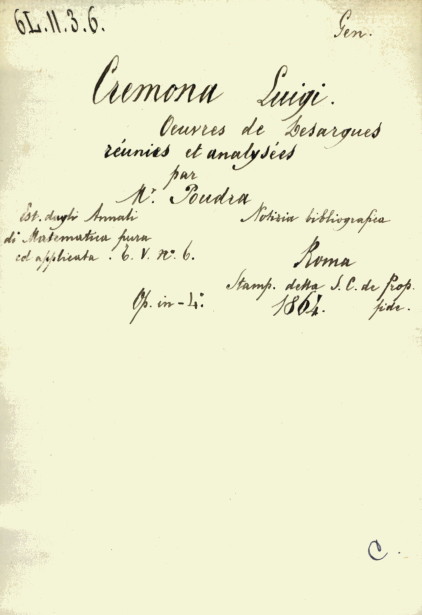 6L.11.3.6.
Gen.
Cremona Luigi.
Oeuvres de Desargues
réunies et analysées
par
Mr. Poudra
Est. dagli Annali
di Matematica pura
ed applicata. T. V. no. 6.
Notizia bibliografica
Roma
Stamp. della S. C. de Prop.
fide.
Op. in-4°.
1864.
C.